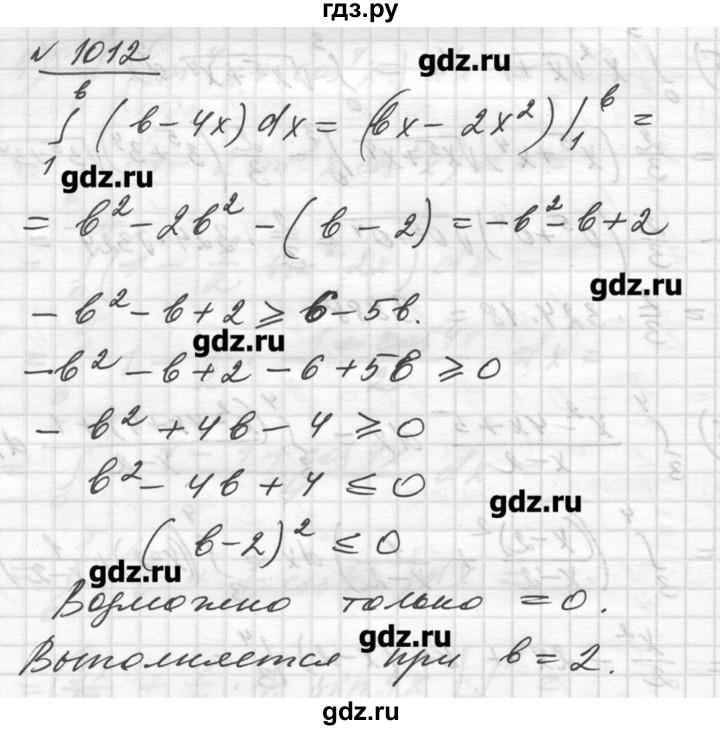 гдз.ру
№ 1012
gdz.ru
∫₁ᵇ (b-4x)dx = (bx - 2x²)|₁ᵇ =
gdz.ru
= b² - 2b² - (b - 2) = -b² - b + 2
gdz.ru
- b² - b + 2 ≥ 6 - 5b.
gdz.ru
- b² - b + 2 - 6 + 5b ≥ 0
- b² + 4b - 4 ≥ 0
b² - 4b + 4 ≤ 0
gdz.ru
(b-2)² ≤ 0
gdz.ru
Возможно только = 0.
gdz.ru
Выполняется при b = 2.
gdz.ru